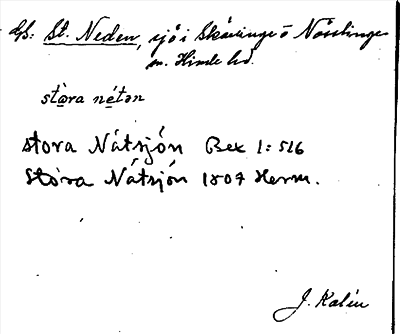 Us: St. Neden, sjö i Skärvinge o Nösslinge
sn. Himle hd.
stɷra nétən
Stora Nátsjón Bex 1:516
Stóra Nátsjón 1807 Herm.
J. Kalén